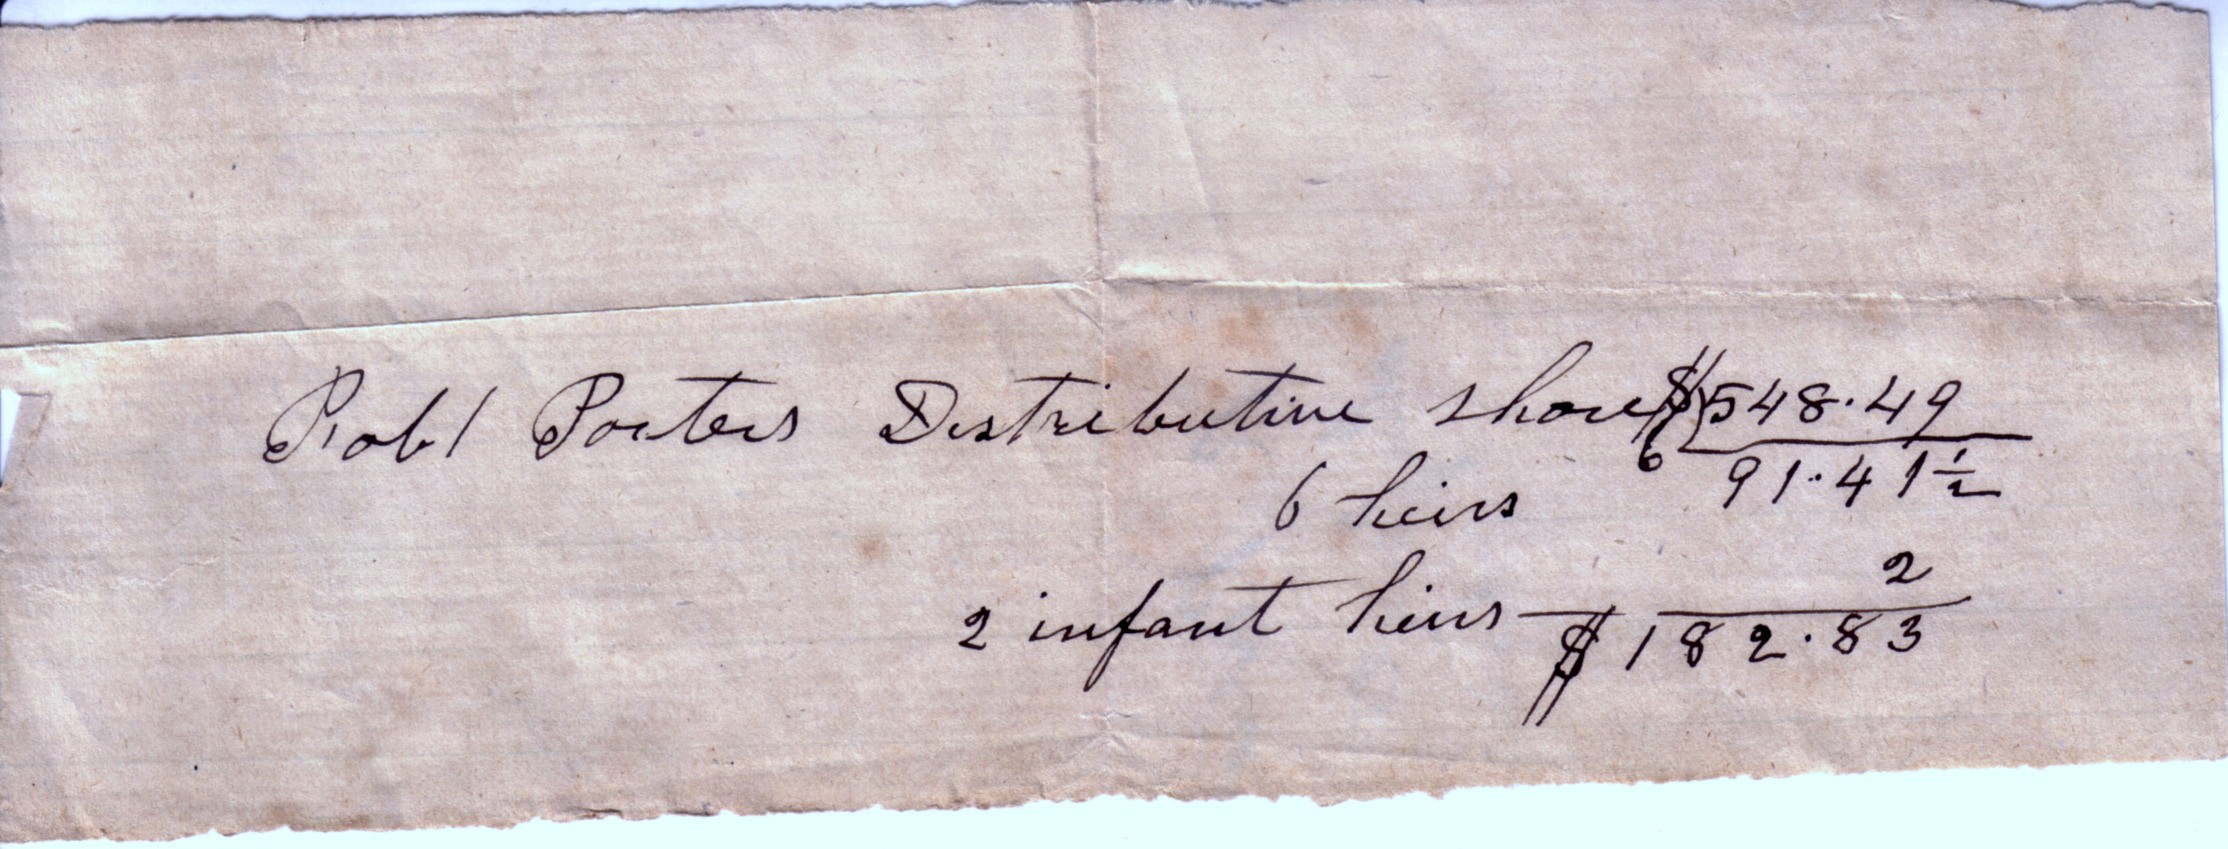 Robt Porters Distributive share $548.49
6 heirs 6 91.41½
2
2 infant heirs — $182.83